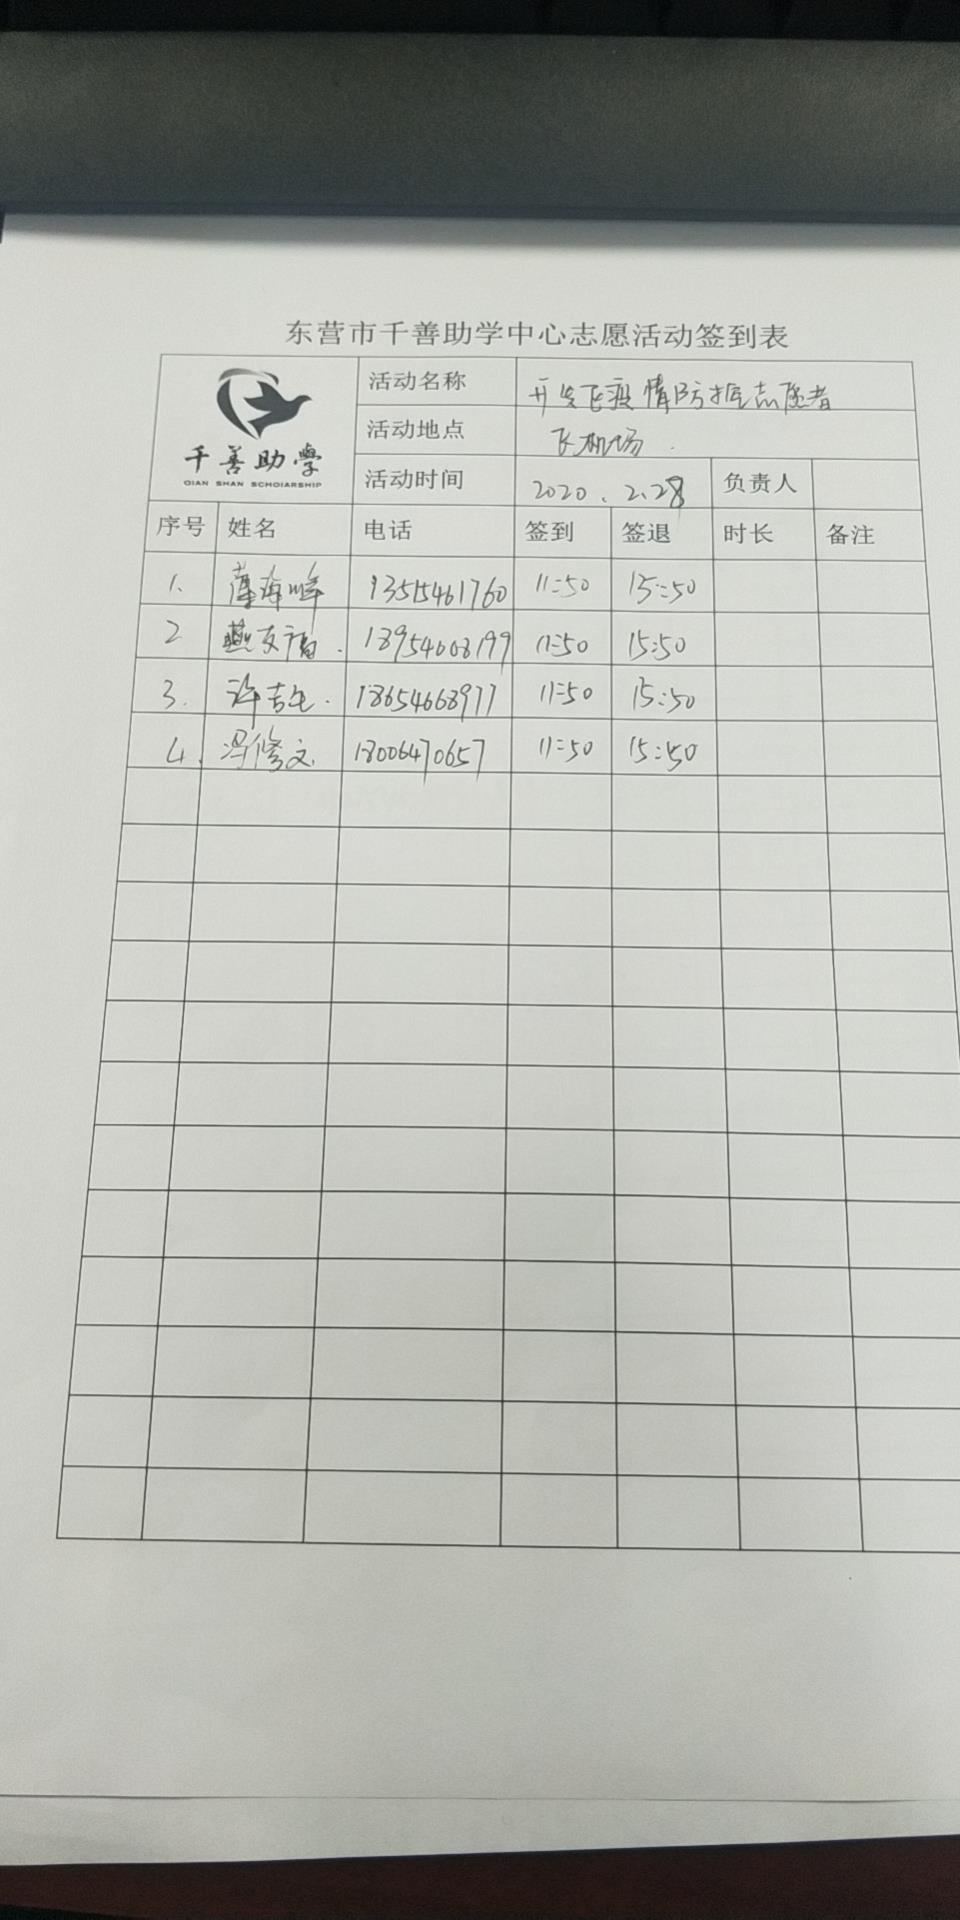 东营市千善助学中心志愿活动签到表
千善助学
QIAN SHAN SCHOIARSHIP
活动名称 开发区疫情防控志愿者
活动地点 飞机场
活动时间 2020.2.28 负责人
序号 姓名 电话 签到 签退 时长 备注
1. 薄海峰 13515461760 11:50 15:50
2 燕友福. 18954608199 11:50 15:50
3. 许吉 18654668977 11:50 15:50
4. 冯修文 18006470657 11:50 15:50